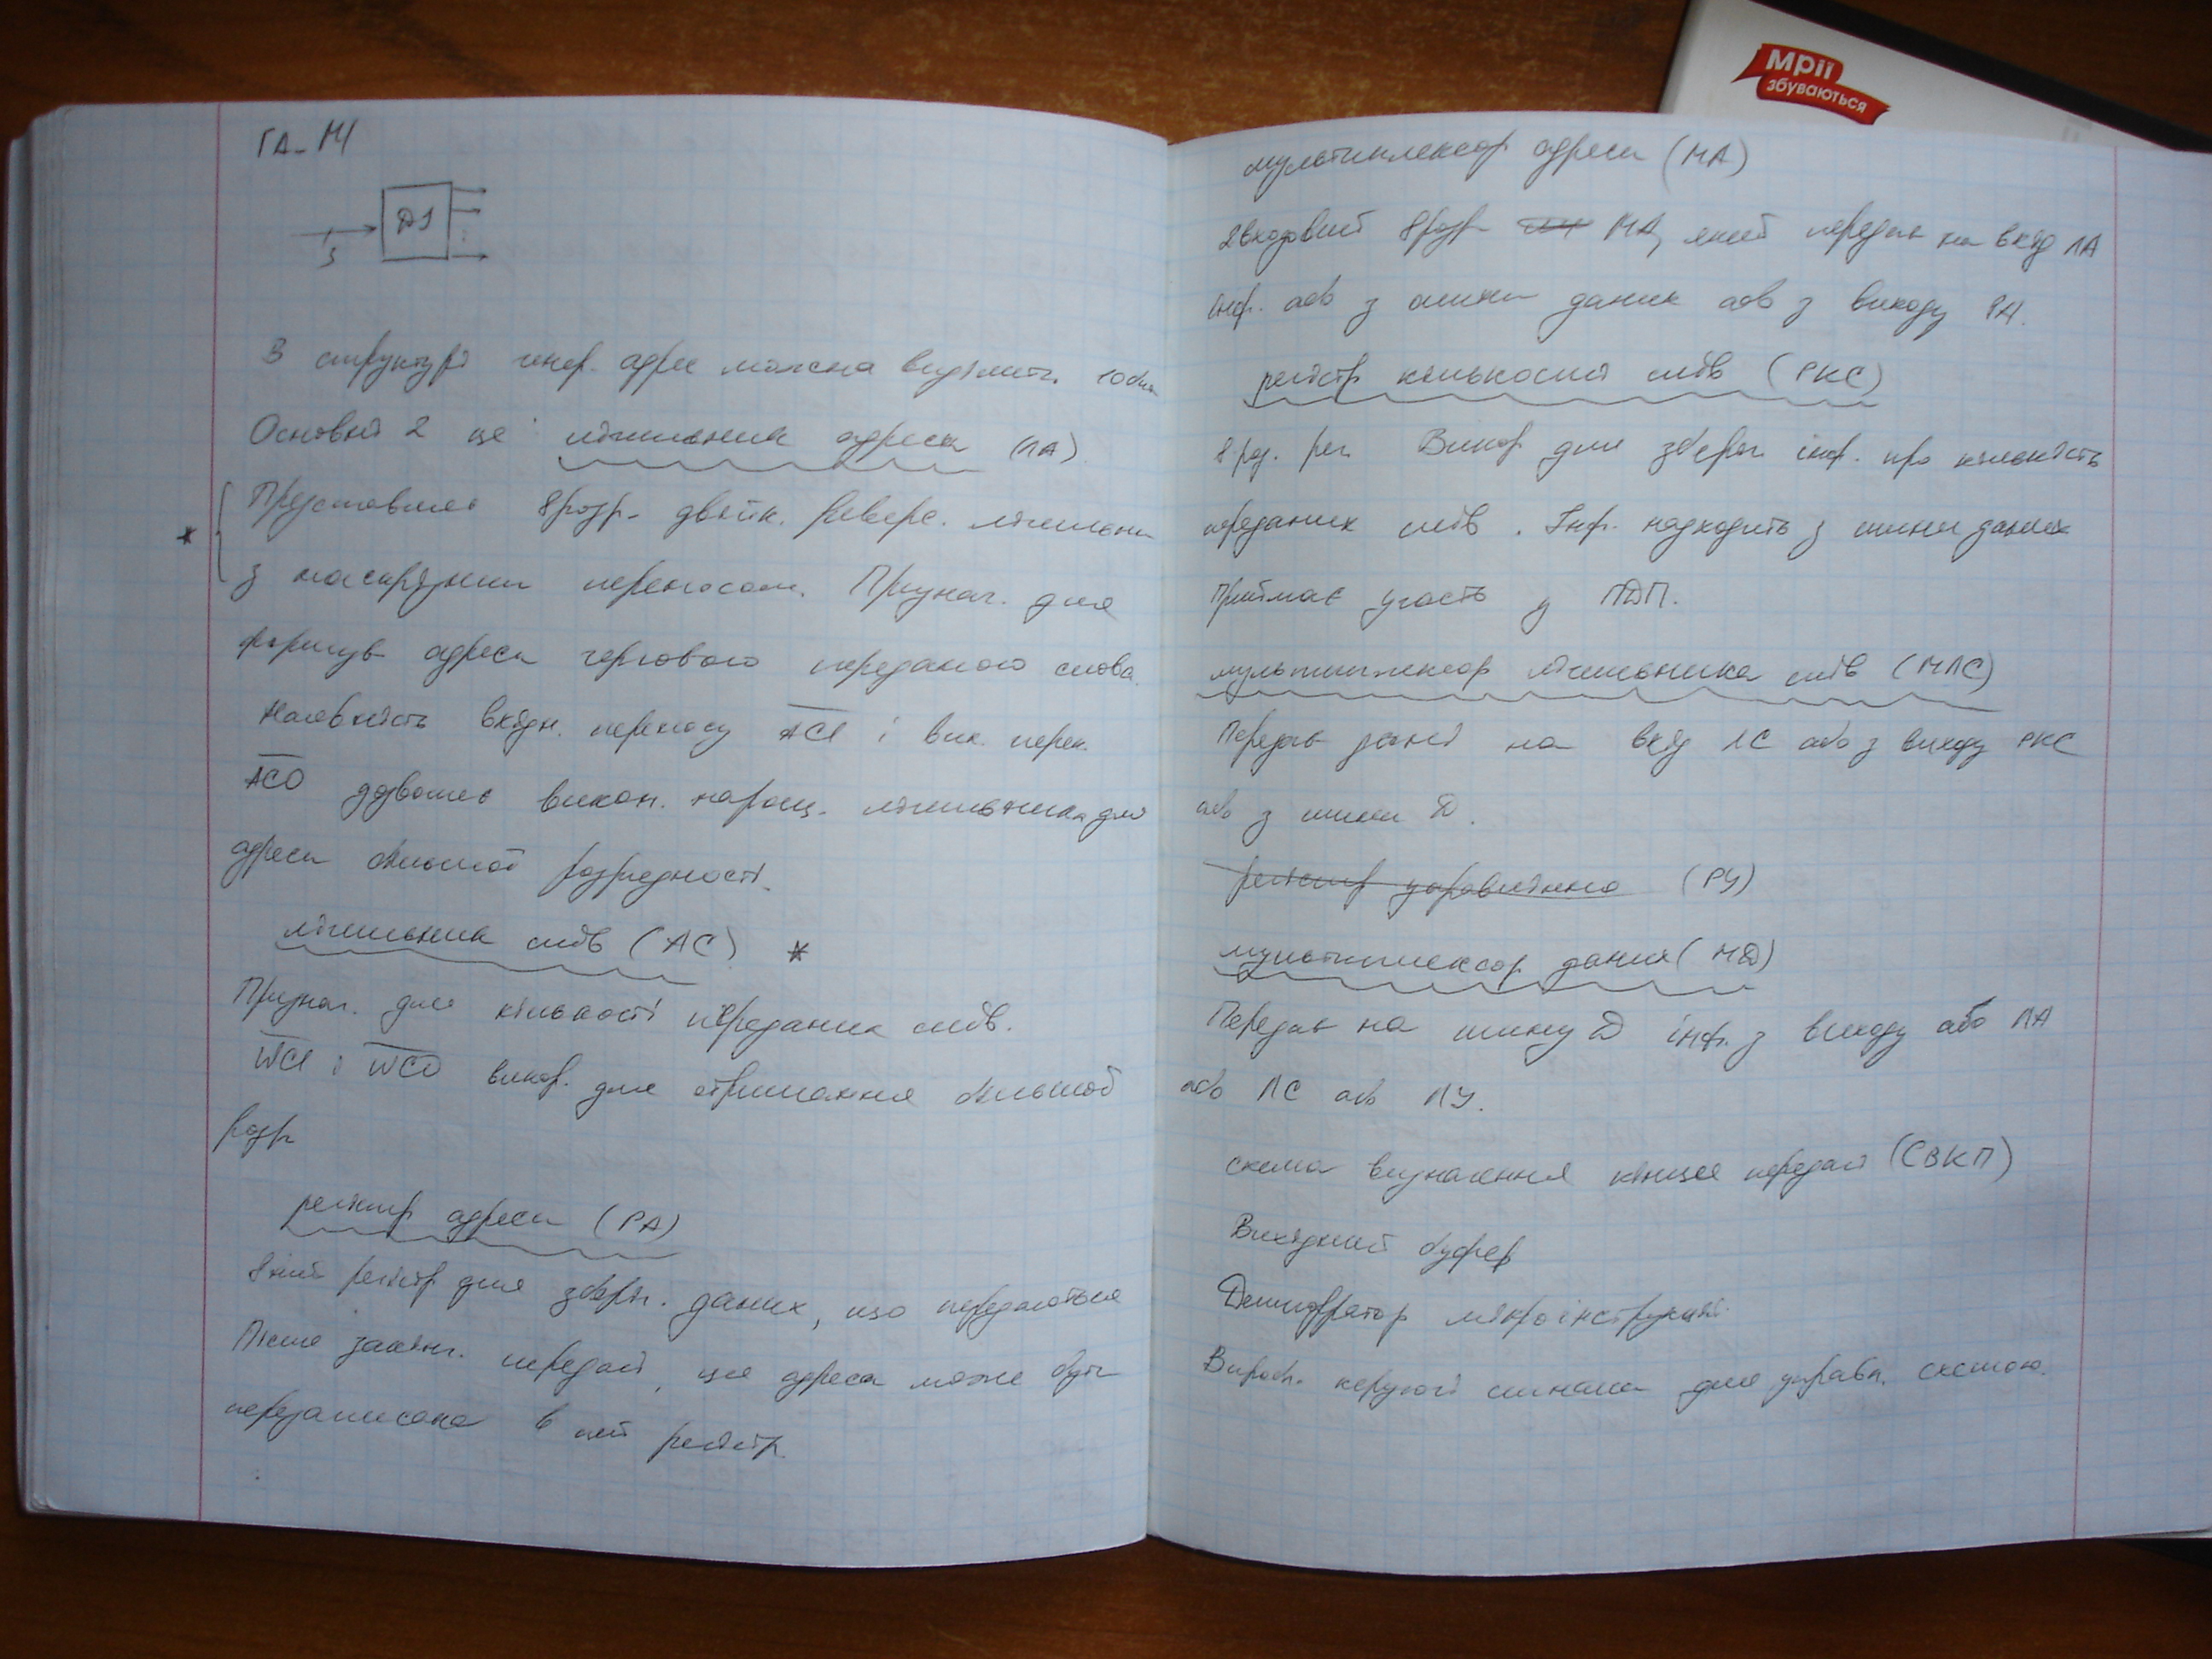 ГА-М1
Д1
5
В структурі генер. адрес можна виділити 10 бл.
Основні 2 це: лічильник адреси (ЛА)
Представляє 8розр. двійк. реверс. лічильн
* з наскрізним переносом. Признач. для
формув адреси чергового переданого слова.
Наявність вхідн. переносу ACI і вих. перен.
ACO дозволяє викон. нарощ. лічильника для
адреси більшої розрядності.
лічильник слів (ЛС) *
Признач. для кількості переданих слів.
WCI і WCO викор. для отримання більшої
розр
регістр адреси (РА)
регістр для зберіг. даних, що передаються
Після закінч. передачі, ця адреса може бути
перезаписана в цей регістр.
Мрії
збуваються
мультиплексор адреси (МА)
2входовий 8розр МА, який передає на вхід ЛА
інф. або з шини даних або з виходу РА.
регістр кількості слів (РКС)
8роз. рег. Викор для зберіг. інф. про кількість
переданих слів. Інф. надходить з шини даних
Приймає участь у ПДП.
мультиплексор лічильника слів (МЛС)
Передає дані на вхід ЛС або з виходу РКС
або з шини D.
регістр управління (РУ)
мультиплексор даних (МД)
Передає на шину D інф. з виходу або ЛА
або ЛС або ЛУ.
схема визначення кінця передачі (СВКП)
Вихідний буфер
Дешифратор мікроінструкцій.
Вироб. керуючі сигнали для управл. схемою.